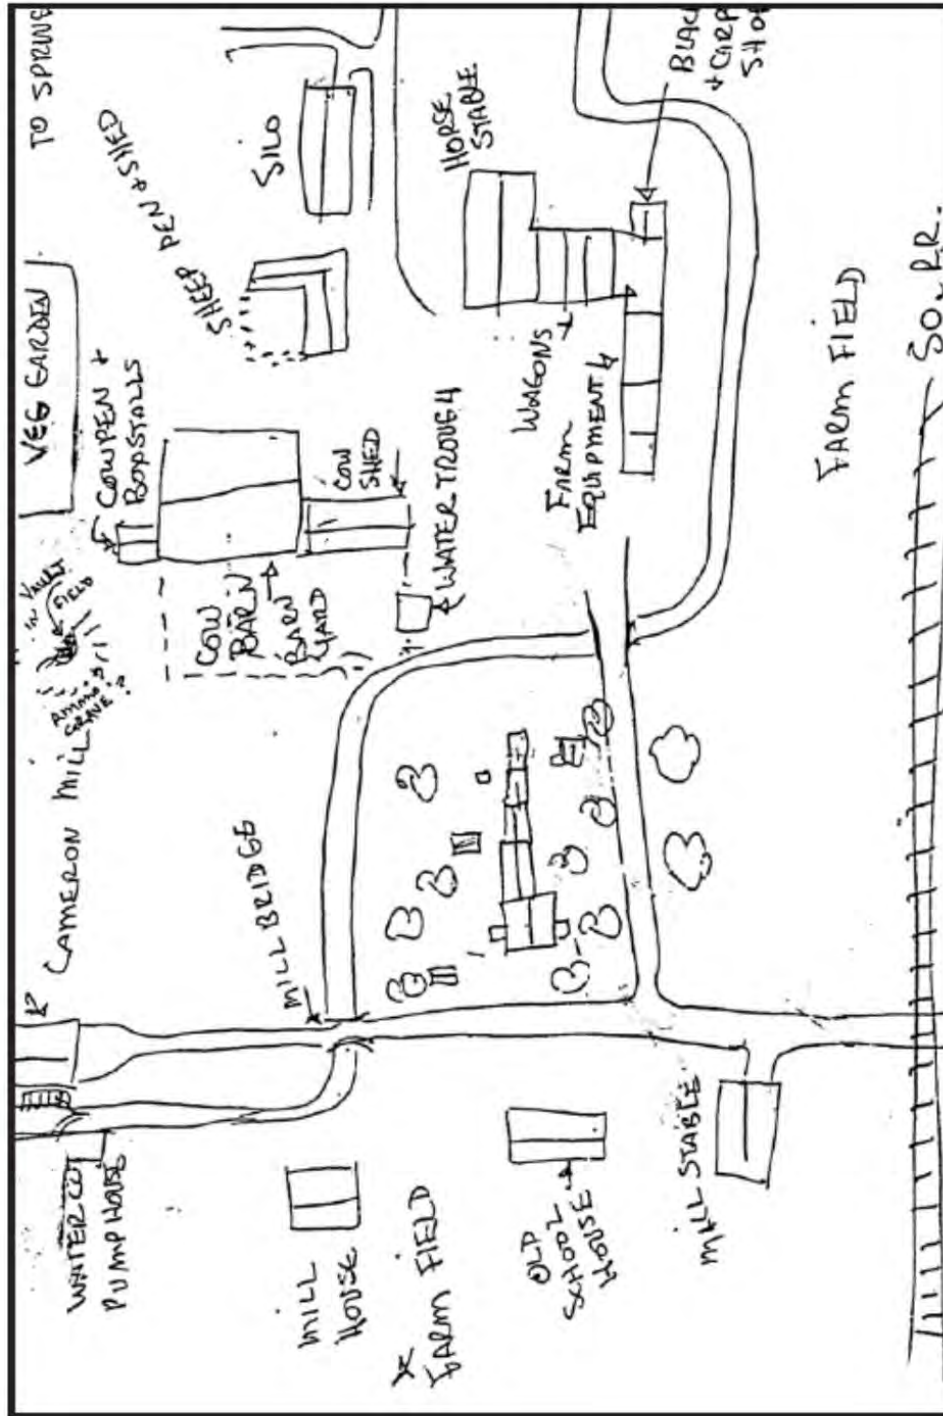 TO SPRING
VEG GARDEN
SHEEP PEN & SHED
SILO
HORSE
STABLE
BLAC
+ CARP
SHO
COWPEN +
BOXSTALLS
COW
SHED
WATER TROUGH
WAGONS
FARM
EQUIPMENT
FARM FIELD
SO. R.R.
VAULT
FIELD
GRAVE?
COW
BARN
BARN
YARD
CAMERON MILL
MILL BRIDGE
WATER CO
PUMP HOUSE
MILL
HOUSE
FARM FIELD
OLD
SCHOOL
HOUSE
MILL STABLE